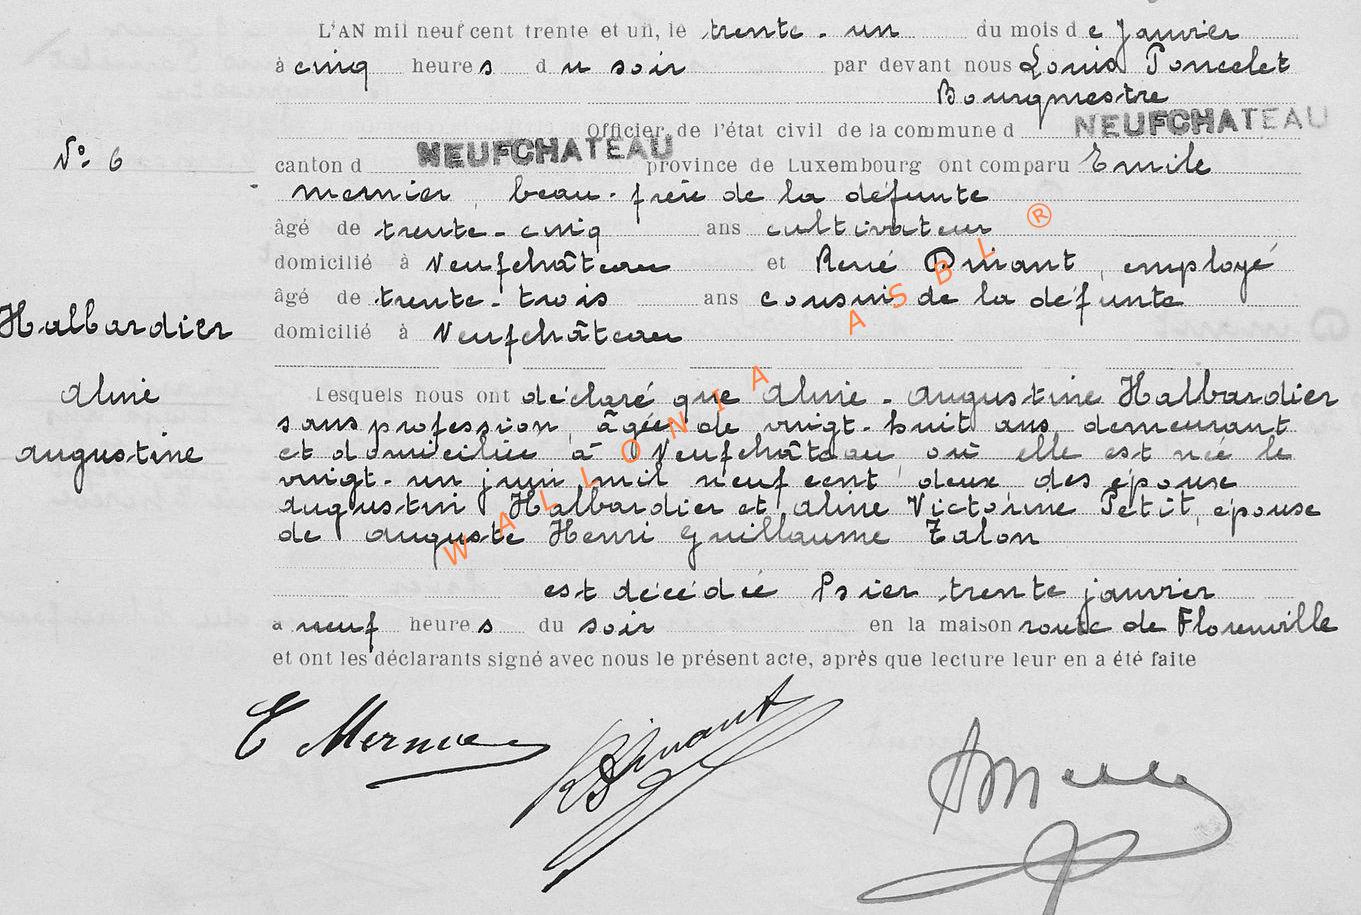 L'AN mil neuf cent trente et un, le trente-un du mois de janvier
à cinq heures du soir par devant nous Louis Poncelet
Bourgmestre
Officier de l'état civil de la commune d NEUFCHATEAU
N° 6
canton d NEUFCHATEAU province de Luxembourg ont comparu Emile
Mernier, beau-frère de la défunte
âgé de trente-cinq ans cultivateur
domicilié à Neufchâteau et René Dinant, employé
âgé de trente-trois ans cousin de la défunte
domicilié à Neufchâteau
Halbardier
Aline
Augustine
Lesquels nous ont déclaré que Aline-Augustine Halbardier
sans profession, âgée de vingt-huit ans, demeurant
et domiciliée à Neufchâteau où elle est née le
vingt-un juin mil neuf cent deux, des époux
Augustin Halbardier et Aline Victorine Petit, épouse
de Auguste Henri Guillaume Talon
est décédée hier trente janvier
à neuf heures du soir en la maison route de Florenville
et ont les déclarants signé avec nous le présent acte, après que lecture leur en a été faite
E Mernier
R Dinant
WALLONIA ASBL ®